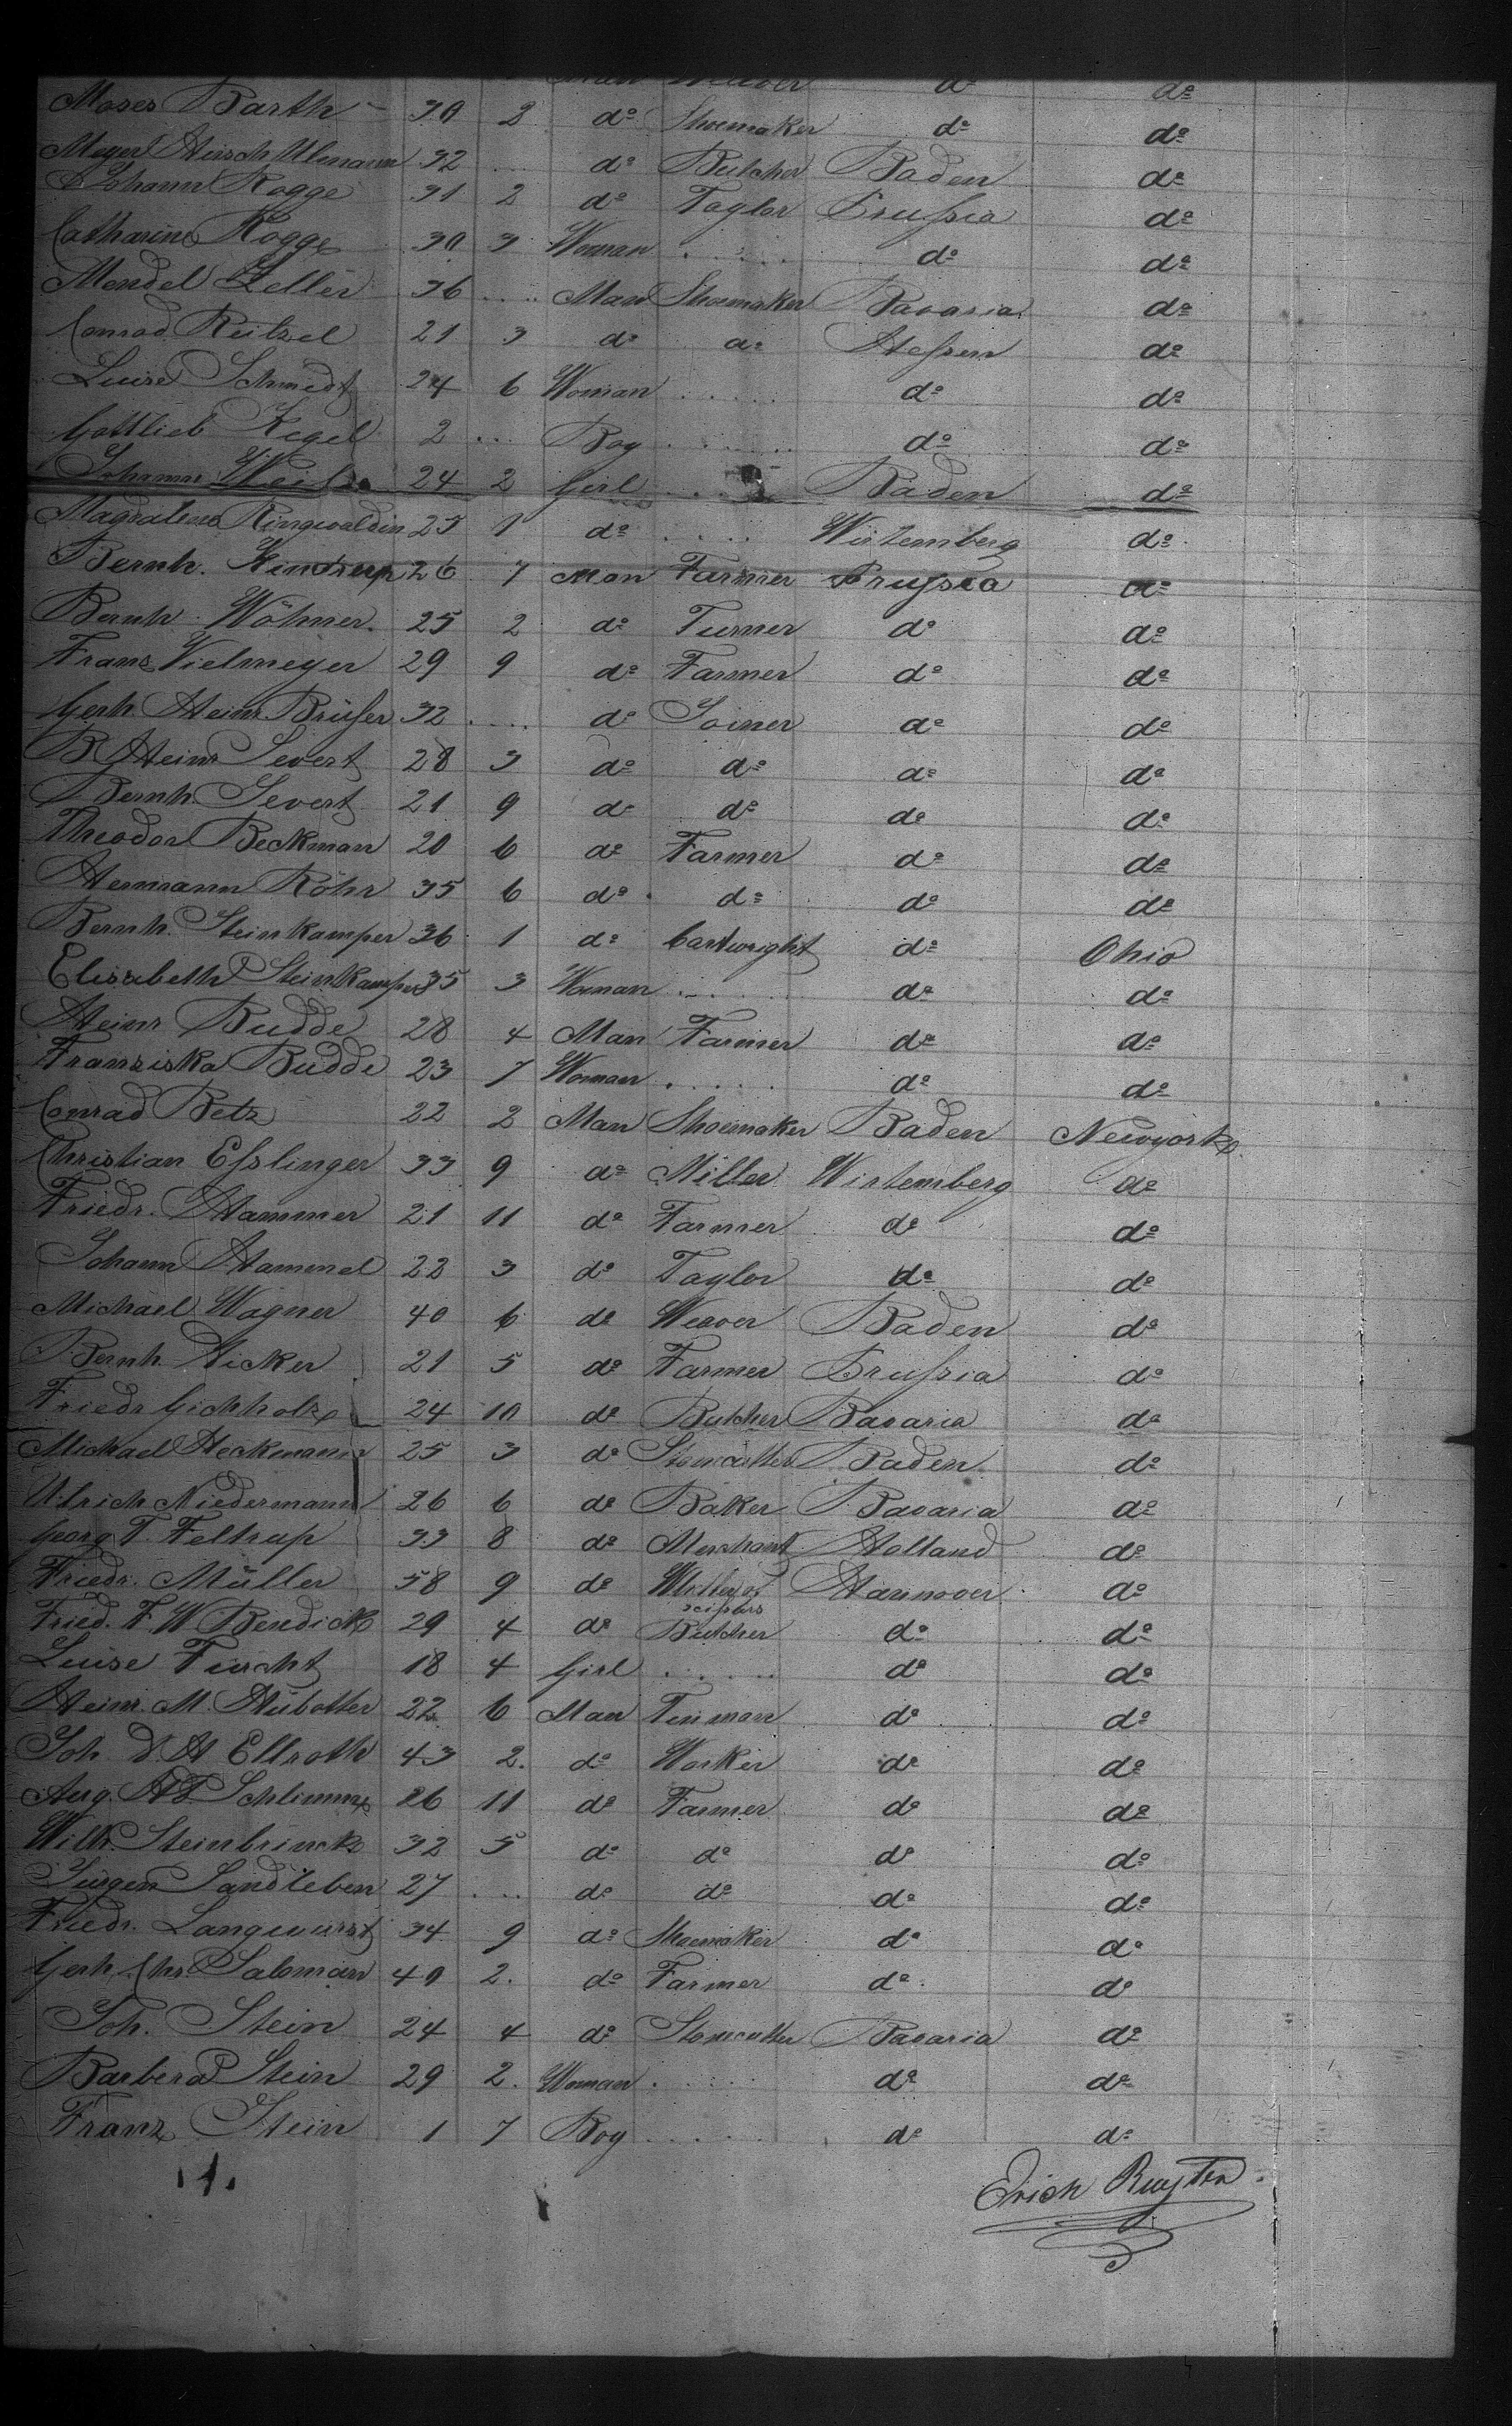 Weaver do do
Moses Barth 30 2 do Shoemaker do do
Meyer Hirsch Ulmann 32 .... do Butcher Baden do
Johann Rogge 31 2 do Taylor Prussia do
Catharine Rogge 30 3 Woman ..... do do
Mendel Zeller 36 .... Man Shoemaker Bavaria do
Conrad Reitzel 21 3 do do Hessen do
Luise Schmidt 24 6 Woman ..... do do
Gottlieb Kegel 2 ... Boy ...... do do
Johanna Weiss 24 2 Girl .... Baden do
Magdalena Ringwaldin 25 1 do .... Wirtemberg do
Bernh. 26 7 Man Farmer Prussia do
Bernh. Wöhner 25 2 do Turner do do
Franz Vielmeyer 29 9 do Farmer do do
Gerh. Heinr. Brüser 32 .... do Joiner do do
B. Heinr Severt 28 3 do do do do
Bernh. Severt 21 9 do do do do
Theodor Beckman 20 6 do Farmer do do
Hermann Röhr 35 6 do do do do
Bernh. Steinkamper 36 1 do Cartwright do Ohio
Elisabeth Steinkamper 35 3 Woman ..... do do
Heinr Budde 28 4 Man Farmer do do
Franziska Budde 23 7 Woman ..... do do
Conrad Betz 22 2 Man Shoemaker Baden Newyork
Christian Esslinger 33 9 do Miller Wirtemberg do
Friedr. Hammer 21 11 do Farmer do do
Johann Hammel 22 3 do Taylor do do
Michael Wagner 40 6 do Weaver Baden do
Bernh. Hicker 21 5 do Farmer Prussia do
Friedr Eichholz 24 10 do Butcher Bavaria do
Michael Heckmann 25 3 do Stonecutter Baden do
Ulrich Niedermann 26 6 do Baker Bavaria do
Georg T. Feltrup 33 8 do Merchant Holland do
Friedr. Müller 58 9 do of scissors Hannover do
Fried. F. W Bendick 29 4 do Butcher do do
Luise Furcht 18 4 Girl ..... do do
Heinr. M. Hübotter 22 6 Man Tinman do do
Joh. D H Ellroth 43 2. do Worker do do
Aug. Schlimme 26 11 do Farmer do do
Wilh. Steinbrinck 32 5 do do do do
Jürgen Sandleben 27 .... do do do do
Friedr. Langwurst 34 9 do Shoemaker do do
Gerh. Chr. Saloman 40 2. do Farmer do do
Joh. Stein 24 4 do Stonecutter Bavaria do
Barbera Stein 29 2. Woman ..... do do
Franz Stein 1 7 Boy ..... do do
Erich